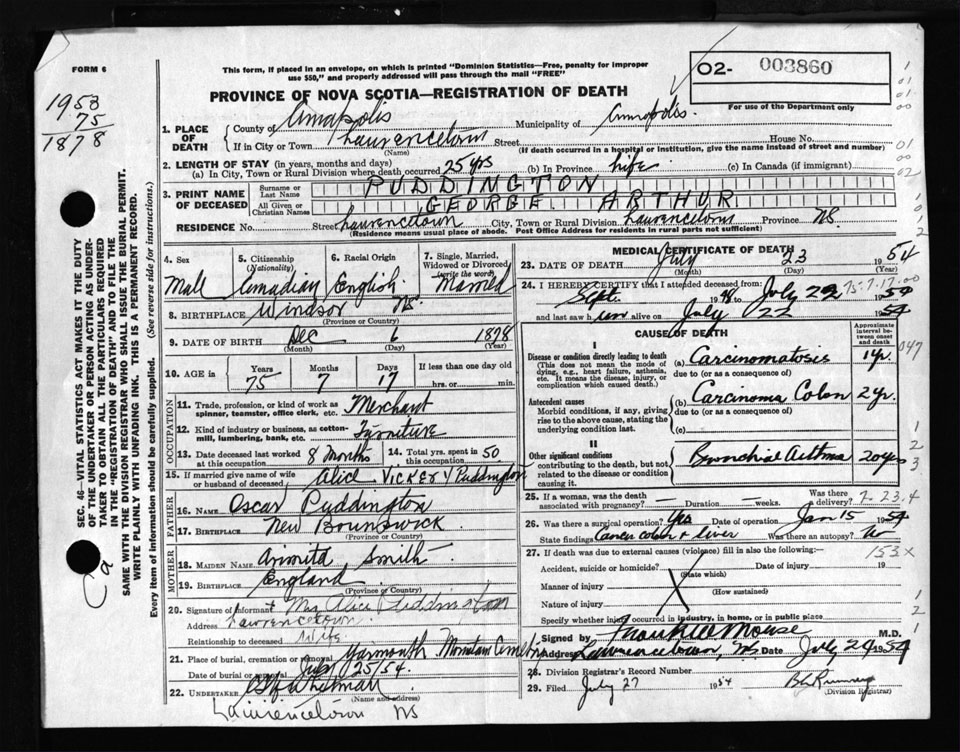 FORM 6
1953
75
1878
This form, if placed in an envelope, on which is printed "Dominion Statistics—Free, penalty for improper
use $50," and properly addressed will pass through the mail "FREE"
O2- 003860
For use of the Department only
PROVINCE OF NOVA SCOTIA—REGISTRATION OF DEATH
1. PLACE OF DEATH County of Annapolis Municipality of Annapolis
If in City or Town Laurencetown Street House No.
(Name) (If death occurred in a hospital or institution, give the name instead of street and number)
2. LENGTH OF STAY (in years, months and days)
(a) In City, Town or Rural Division where death occurred 25 yrs (b) In Province Life (c) In Canada (if immigrant)
3. PRINT NAME OF DECEASED Surname or Last Name PUDDINGTON
All Given or Christian Names GEORGE ARTHUR
RESIDENCE No. Street Laurencetown City, Town or Rural Division Laurencetown Province NS
(Residence means usual place of abode. Post Office Address for residents in rural parts not sufficient)
4. Sex 5. Citizenship (Nationality) 6. Racial Origin 7. Single, Married, Widowed or Divorced (write the word)
Male Canadian English Married
8. BIRTHPLACE Windsor NS.
(Province or Country)
9. DATE OF BIRTH Dec 6 1878
(Month) (Day) (Year)
10. AGE in Years Months Days If less than one day old
75 7 17 hrs. or min.
OCCUPATION
11. Trade, profession, or kind of work as spinner, teamster, office clerk, etc. Merchant
12. Kind of industry or business, as cotton-mill, lumbering, bank, etc. Furniture
13. Date deceased last worked at this occupation 8 months 14. Total yrs. spent in this occupation 50
15. If married give name of wife or husband of deceased, Alice VICKERY Puddington
FATHER
16. Name Oscar Puddington
17. Birthplace New Brunswick
(Province or Country)
MOTHER
18. Maiden Name Smith
19. Birthplace England
(Province or Country)
20. Signature of Informant Mrs Alice Puddington
Address Lawrencetown
Relationship to deceased Wife
21. Place of burial, cremation or removal Yarmouth Mountain
Date of burial or removal July 25/54
22. Undertaker Whitman
(Name and address)
Lawrencetown NS
MEDICAL CERTIFICATE OF DEATH
23. DATE OF DEATH July 23 1954
(Month) (Day) (Year)
24. I HEREBY CERTIFY that I attended deceased from:
Sept. 1948 July 22 1954
75-7-17.00
and last saw him alive on July 22 1954
CAUSE OF DEATH
Approximate interval between onset and death
I
Disease or condition directly leading to death (a) Carcinomatosis 1 yr.
(This does not mean the mode of dying, e.g., heart failure, asthenia, etc. It means the disease, injury, or complication which caused death.)
due to (or as a consequence of)
047
Antecedent causes (b) Carcinoma Colon 2 yr.
Morbid conditions, if any, giving rise to the above cause, stating the underlying condition last.
due to (or as a consequence of)
(c)
II
Other significant conditions Bronchial Asthma 20 yrs
contributing to the death, but not related to the disease or condition causing it.
25. If a woman, was the death associated with pregnancy? — Duration — weeks. Was there a delivery?
7-23.4
26. Was there a surgical operation? Yes Date of operation Jan 15 1954
State findings Cancer colon & liver Was there an autopsy?
27. If death was due to external causes (violence) fill in also the following:—
153X
Accident, suicide or homicide? Date of injury 19
(State which)
Manner of injury
(How sustained)
Nature of injury
Specify whether injury occurred in industry, in home, or in public place
Signed by Morse M.D.
Address Lawrencetown, NS Date July 24 1954
28. Division Registrar's Record Number
29. Filed July 27 1954
(Division Registrar)
SEC. 46- VITAL STATISTICS ACT MAKES IT THE DUTY
OF THE UNDERTAKER OR PERSON ACTING AS UNDER-
TAKER TO OBTAIN ALL THE PARTICULARS REQUIRED
IN THE "REGISTRATION OF DEATH" AND TO FILE THE
SAME WITH THE DIVISION REGISTRAR WHO SHALL ISSUE THE BURIAL PERMIT.
WRITE PLAINLY WITH UNFADING INK. THIS IS A PERMANENT RECORD.
Every item of information should be carefully supplied. (See reverse side for instructions.)